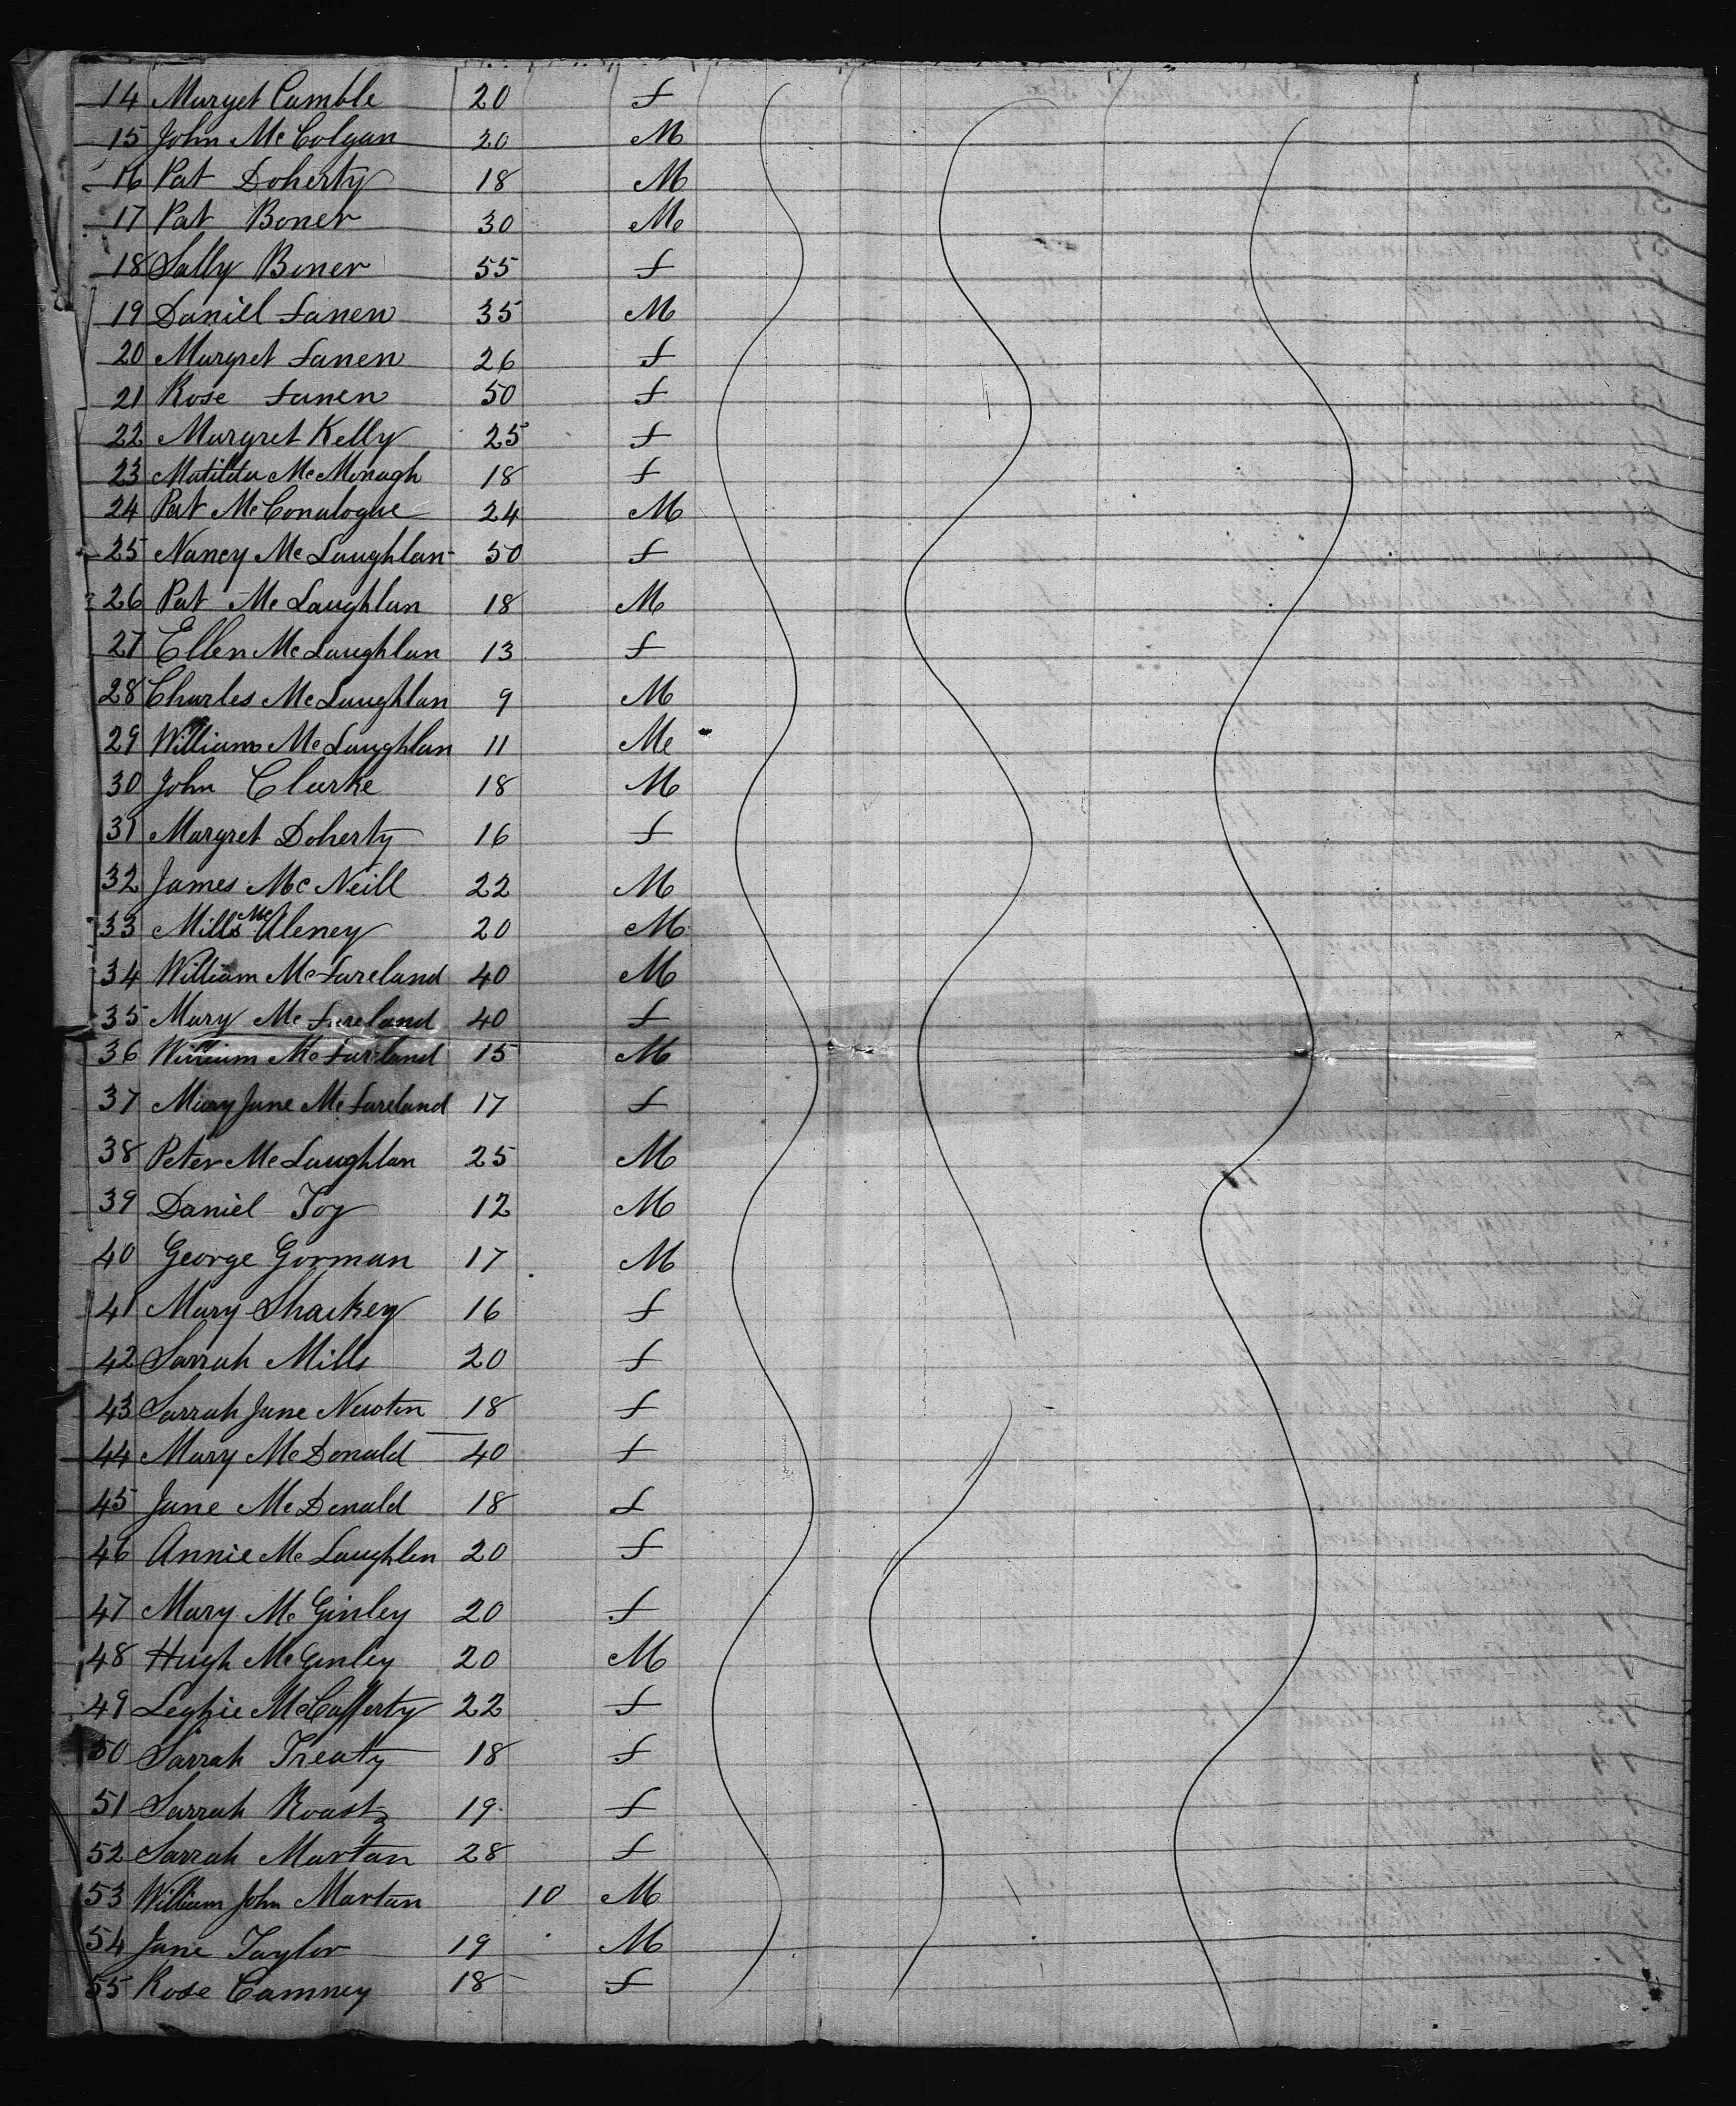 14 Margret Camble 20 f
15 John McColgan 20 M
16 Pat Doherty 18 M
17 Pat Boner 30 M
18 Sally Boner 55 f
19 Daniel Fanen 35 M
20 Margret Fanen 26 f
21 Rose Fanen 50 f
22 Margret Kelly 25 f
23 Matilda McMonagh 18 f
24 Pat McConalogue 24 M
25 Nancy McLaughlan 50 f
26 Pat McLaughlan 18 M
27 Ellen McLaughlan 13 f
28 Charles McLaughlan 9 M
29 William McLaughlan 11 M
30 John Clarke 18 M
31 Margret Doherty 16 f
32 James McNeill 22 M
33 Mills McAleney 20 M
34 William McFareland 40 M
35 Mary McFareland 40 f
36 William McFareland 15 M
37 Mary Jane McFareland 17 f
38 Peter McLaughlan 25 M
39 Daniel Toy 12 M
40 George Gorman 17 M
41 Mary Sharkey 16 f
42 Sarrah Mills 20 f
43 Sarrah Jane Newton 18 f
44 Mary McDonald 40 f
45 Jane McDonald 18 f
46 Annie McLaughlen 20 f
47 Mary McGinley 20 f
48 Hugh McGinley 20 M
49 McCafferty 22 f
50 Sarrah Treaty 18 f
51 Sarrah 19 f
52 Sarrah Martan 28 f
53 William John Martan 10 M
54 Jane Taylor 19 M
55 Rose Camney 18 f